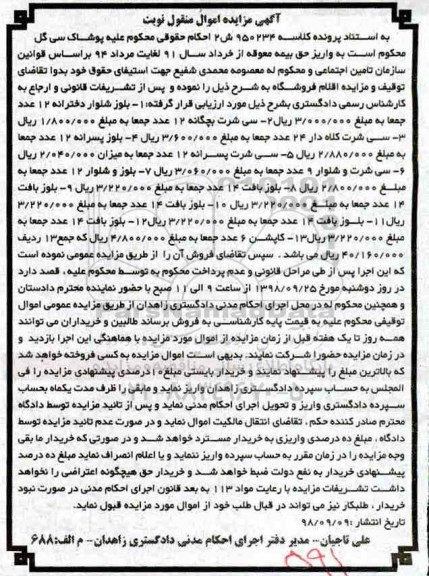 آگهی مزایده اموال منقول نوبت
به استناد پرونده کلاسه ۹۵۰۲۳۴ ش۲ احکام حقوقی محکوم علیه پوشاک سی گل
محکوم است به واریز حق بیمه معوقه از خرداد سال ۹۱ لغایت مرداد ۹۴ براساس قوانین
سازمان تامین اجتماعی و محکوم له معصومه محمدی شفیع جهت استیفای حقوق خود بدوا تقاضای
توقیف و مزایده اقلام فروشگاه به شرح ذیل را نموده و پس از تشریفات قانونی و ارجاع به
کارشناس رسمی دادگستری بشرح ذیل مورد ارزیابی قرار گرفته:۱- بلوز شلوار دخترانه ۱۲ عدد
جمعا به مبلغ ۳/۰۰۰/۰۰۰ ریال۲- سی شرت بچگانه ۱۲ عدد جمعا به مبلغ ۱/۸۰۰/۰۰۰ ریال
۳- سی شرت کلاه دار ۲۴ عدد جمعا به مبلغ ۳/۶۰۰/۰۰۰ ریال ۴- بلوز پسرانه ۱۲ عدد جمعا
به مبلغ ۲/۸۸۰/۰۰۰ ریال ۵- سی شرت پسرانه ۱۲ عدد جمعا به میزان ۲/۰۴۰/۰۰۰ ریال
۶- سی شرت و شلوار ۱۲ عدد جمعا به مبلغ ۳/۰۶۰/۰۰۰ ریال ۷- بلوز و شلوار ۱۲ عدد جمعا به
مبلغ ۲/۸۰۰/۰۰۰ ریال ۸- بلوز بافت ۱۴ عدد جمعا به مبلغ ۳/۲۲۰/۰۰۰ ریال ۹- بلوز بافت
۱۴ عدد جمعا به مبلغ ۳/۲۲۰/۰۰۰ ریال ۱۰- بلوز بافت ۱۴ عدد جمعا به مبلغ ۳/۲۲۰/۰۰۰
ریال۱۱- بلوز بافت ۱۴ عدد جمعا به مبلغ ۳/۲۲۰/۰۰۰ ریال۱۲- بلوز بافت ۱۴ عدد جمعا به
مبلغ ۳/۲۲۰/۰۰۰ ریال۱۳- کاپشن ۶ عدد جمعا به مبلغ ۴/۸۰۰/۰۰۰ ریال که جمع۱۳ ردیف
۴۰/۱۶۰/۰۰۰ ریال می باشد . سپس تقاضای فروش آن را از طریق مزایده عمومی نموده است
که این اجرا پس از طی مراحل قانونی و عدم پرداخت محکوم به توسط محکوم علیه ، قصد دارد
در روز دوشنبه مورخ ۱۳۹۸/۰۹/۲۵ از ساعت ۹ الی ۱۱ صبح با حضور نماینده محترم دادستان
و همچنین محکوم له در محل اجرای احکام مدنی دادگستری زاهدان از طریق مزایده عمومی اموال
توقیفی محکوم علیه به قیمت پایه کارشناسی به فروش برساند طالبین و خریداران می توانند
همه روز تا یک هفته قبل از زمان مزایده از اموال مورد مزایده با هماهنگی این اجرا بازدید و
در زمان مزایده حضورا شرکت نمایند. بدیهی است اموال مزایده به کسی فروخته خواهد شد
که بالاترین مبلغ را پیشنهاد نمایند و خریدار بایستی مبلغ۱۰ درصدی پیشنهادی مزایده را فی
المجلس به حساب سپرده دادگستری زاهدان واریز نماید و مابقی را ظرف مدت یکماه بحساب
سپرده دادگستری واریز و تحویل اجرای احکام مدنی نماید و پس از تائید مزایده توسط دادگاه
محترم صادر کننده حکم ، تقاضای انتقال مالکیت اموال نماید و در صورت عدم تائید مزایده توسط
دادگاه ، مبلغ ده درصدی واریزی به خریدار مسترد خواهد شد و در صورتی که خریدار ما بقی
وجه مزایده را در زمان مقرر به حساب سپرده واریز ننماید و یا اعلام انصراف نماید مبلغ ده درصد
پیشنهادی خریدار به نفع دولت ضبط خواهد شد و خریدار حق هیچگونه اعتراضی را نخواهد
داشت تشریفات مزایده با رعایت مواد ۱۱۳ به بعد قانون اجرای احکام مدنی در صورت نبود
خریدار ، طلبکار نیز می تواند در قبال طلب خود از اموال مورد مزایده قبول نماید.
تاریخ انتشار :۹۸/۰۹/۰۹
علی تاجیان-- مدیر دفتر اجرای احکام مدنی دادگستری زاهدان- م الف:۶۸۸